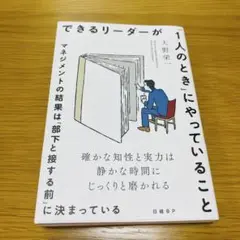 できるリーダーが
「1人のとき」にやっていること
大野栄一
マネジメントの結果は「部下と接する前」に決まっている
確かな知性と実力は
静かな時間に
じっくりと磨かれる
日経BP